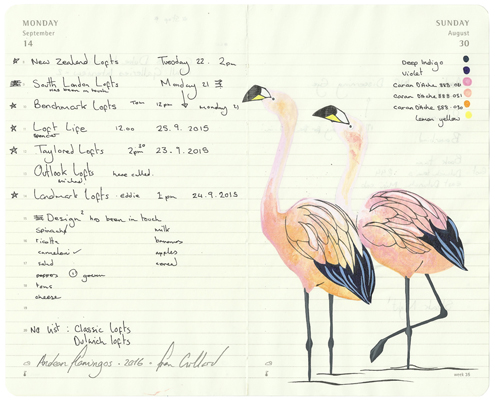 MONDAY
September
14
New Zealand Lofts Tuesday 22. 2pm
South London Lofts Monday 21
has been in touch
Benchmark Lofts Tom 12pm monday 21
Loft Life 12.00 25.9.2015
Spencer
Taylored Lofts 2pm 23.9.2015
Outlook Lofts have called.
michael
Landmark Lofts - eddie 1pm 24.9.2015
Design² has been in touch
Spinach milk
ricotta bananas
cannelloni ✓ apples
salad cereal
peppers
cheese
No list : Classic lofts
Dulwich lofts
Andean flamingos - 2016 -
SUNDAY
August
30
Deep Indigo
Violet
Caran D'Ache 888.081
Caran D'Ache 888.051
Caran D'Ache 888.030
Lemon yellow
week 38